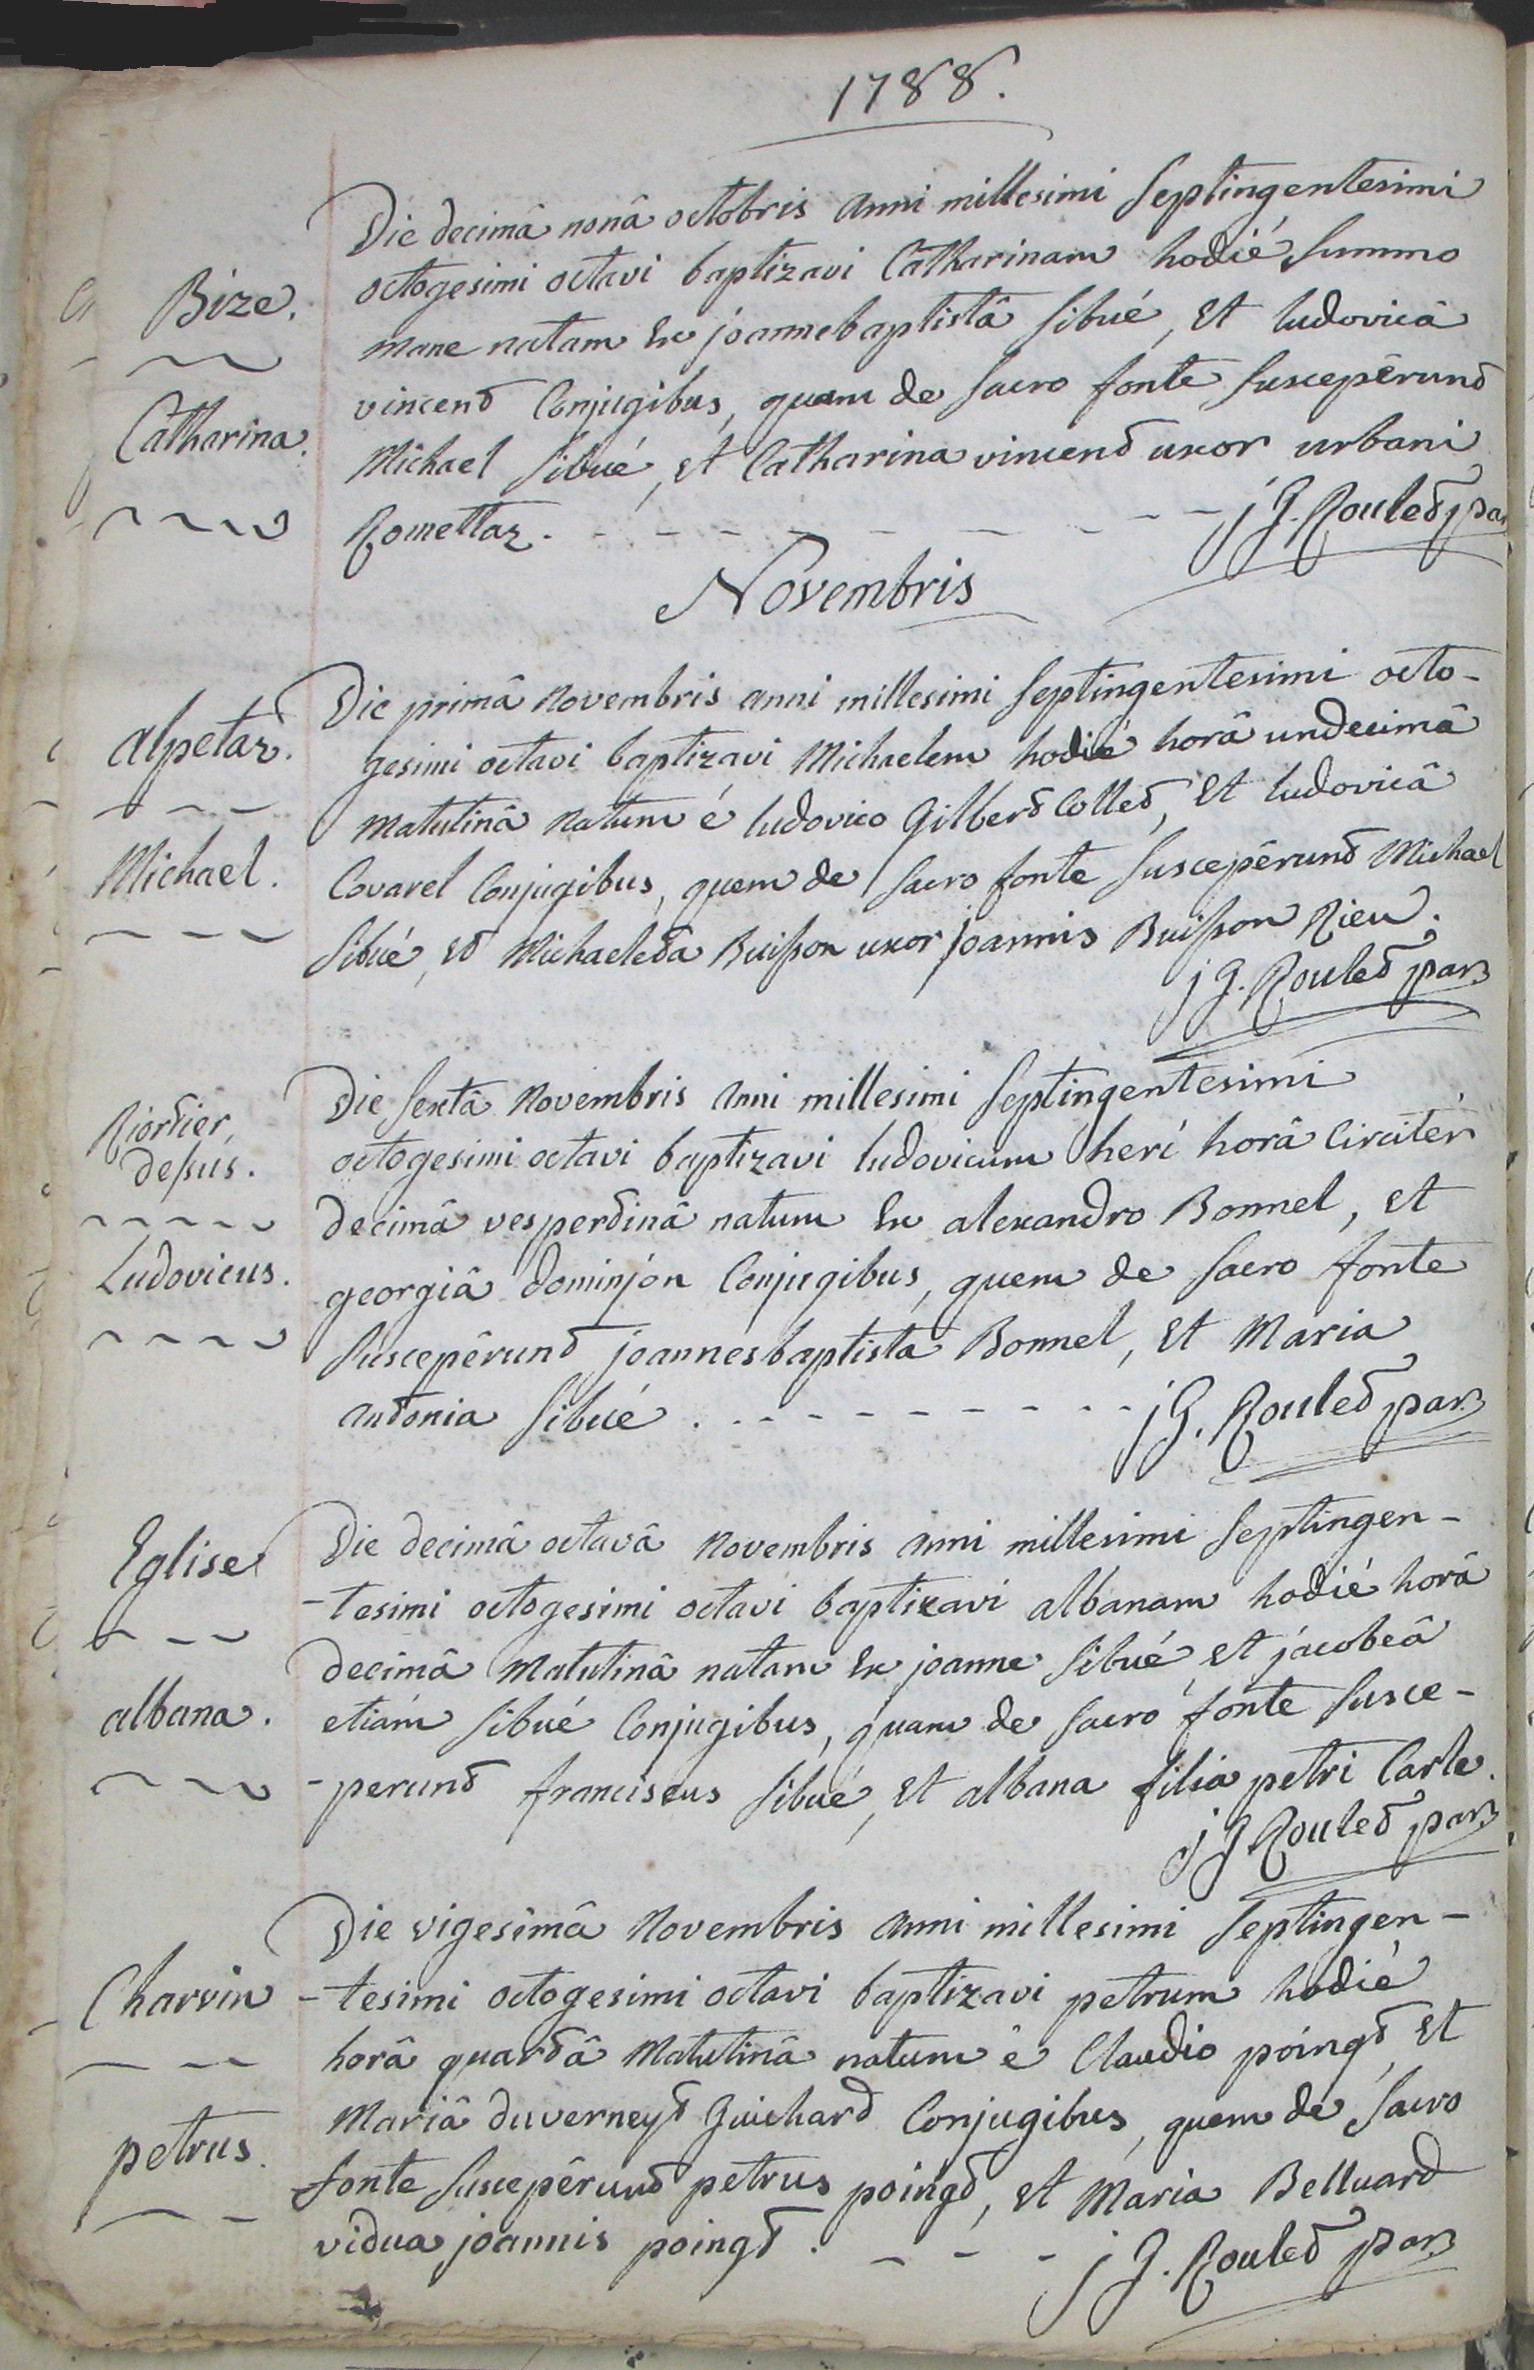 1788.
Die decimâ nonâ octobris anni millesimi Septingentesimi
octogesimi octavi baptizavi Catharinam hodié summo
Bize.
mane natam Ex joannebaptistâ Sibué, Et ludovicâ
vincend Conjugibus, quam de Sacro fonte Suscepêrund
Catharina.
Michael Sibué, Et Catharina vincend uxor urbani
Romettaz. j G. Rouled par
Novembris
Die primâ Novembris anni millesimi Septingentesimi octo-
alpetaz.
gesimi octavi baptizavi Michaelem hodié horâ undecimâ
Matutinâ Natum é ludovico Gilberd Colled, Et ludovicâ
Michael.
Covarel Conjugibus, quem de Sacro fonte Suscepêrund Michael
Sibué, Ed Michaeleda Buisson uxor joannis Buisson Rieu.
j G. Rouled par
Die Sextâ Novembris anni millesimi Septingentesimi
Riordier,
dessus.
octogesimi octavi baptizavi ludovicum heri horâ Circitér
decimâ vesperdinâ natum Ex alexandro Bonnel, Et
Ludovicus.
georgiâ dominjon Conjugibus, quem de Sacro fonte
Suscepêrund joannesbaptista Bonnel, Et Maria
andonia Sibué. j G. Rouled par
Eglise
Die decimâ octavâ Novembris anni millesimi Septingen-
-tesimi octogesimi octavi baptizavi albanam hodié horâ
decimâ Matutinâ natam Ex joanne Sibué, Et jacobeâ
albana.
etiám Sibué Conjugibus, quam de Sacro fonte Susce-
-perund franciscus Sibué, Et albana filia petri Carle.
j G. Rouled par
Die vigesimâ Novembris anni millesimi Septingen-
Charvin
-tesimi octogesimi octavi baptizavi petrum hodié
horâ quardâ Matutinâ natum é Claudio poingd, Et
Mariâ duverneyd Guichard Conjugibus, quem de Sacro
petrus.
fonte Suscepêrund petrus poingd, Et Maria Belluard
vidua joannis poingd. j G. Rouled par